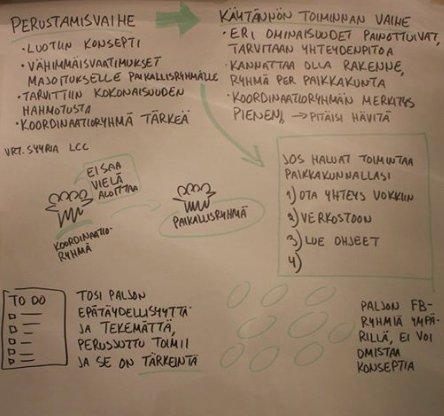 PERUSTAMISVAIHE
• LUOTIIN KONSEPTI
• VÄHIMMÄISVAATIMUKSET
MAJOITUKSELLE PAIKALLISRYHMÄLLE
• TARVITTIIN KOKONAISUUDEN
HAHMOTUSTA
• KOORDINAATIORYHMÄ TÄRKEÄ
VRT. SYYRIA LCC
EI SAA
VIELÄ
ALOITTAA
KOORDINAATIO-
RYHMÄ
PAIKALLISRYHMÄ
KÄYTÄNNÖN TOIMINNAN VAIHE
• ERI OMINAISUUDET PAINOTTUIVAT,
TARVITAAN YHTEYDENPITOA
• KANNATTAA OLLA RAKENNE,
RYHMÄ PER PAIKKAKUNTA
• KOORDINAATIORYHMÄN MERKITYS
PIENENI, → PITÄISI HÄVITÄ
JOS HALUAT TOIMINTAA
PAIKKAKUNNALLASI
1) OTA YHTEYS VOKKIIN
2) VERKOSTOON
3) LUE OHJEET
4)
TO DO
TOSI PALJON
EPÄTÄYDELLISYYTTÄ
JA TEKEMÄTTÄ,
PERUSJUTTU TOIMII
JA SE ON TÄRKEINTÄ
PALJON FB-
RYHMIÄ YMPÄ-
RILLÄ, EI VOI
OMISTAA
KONSEPTIA